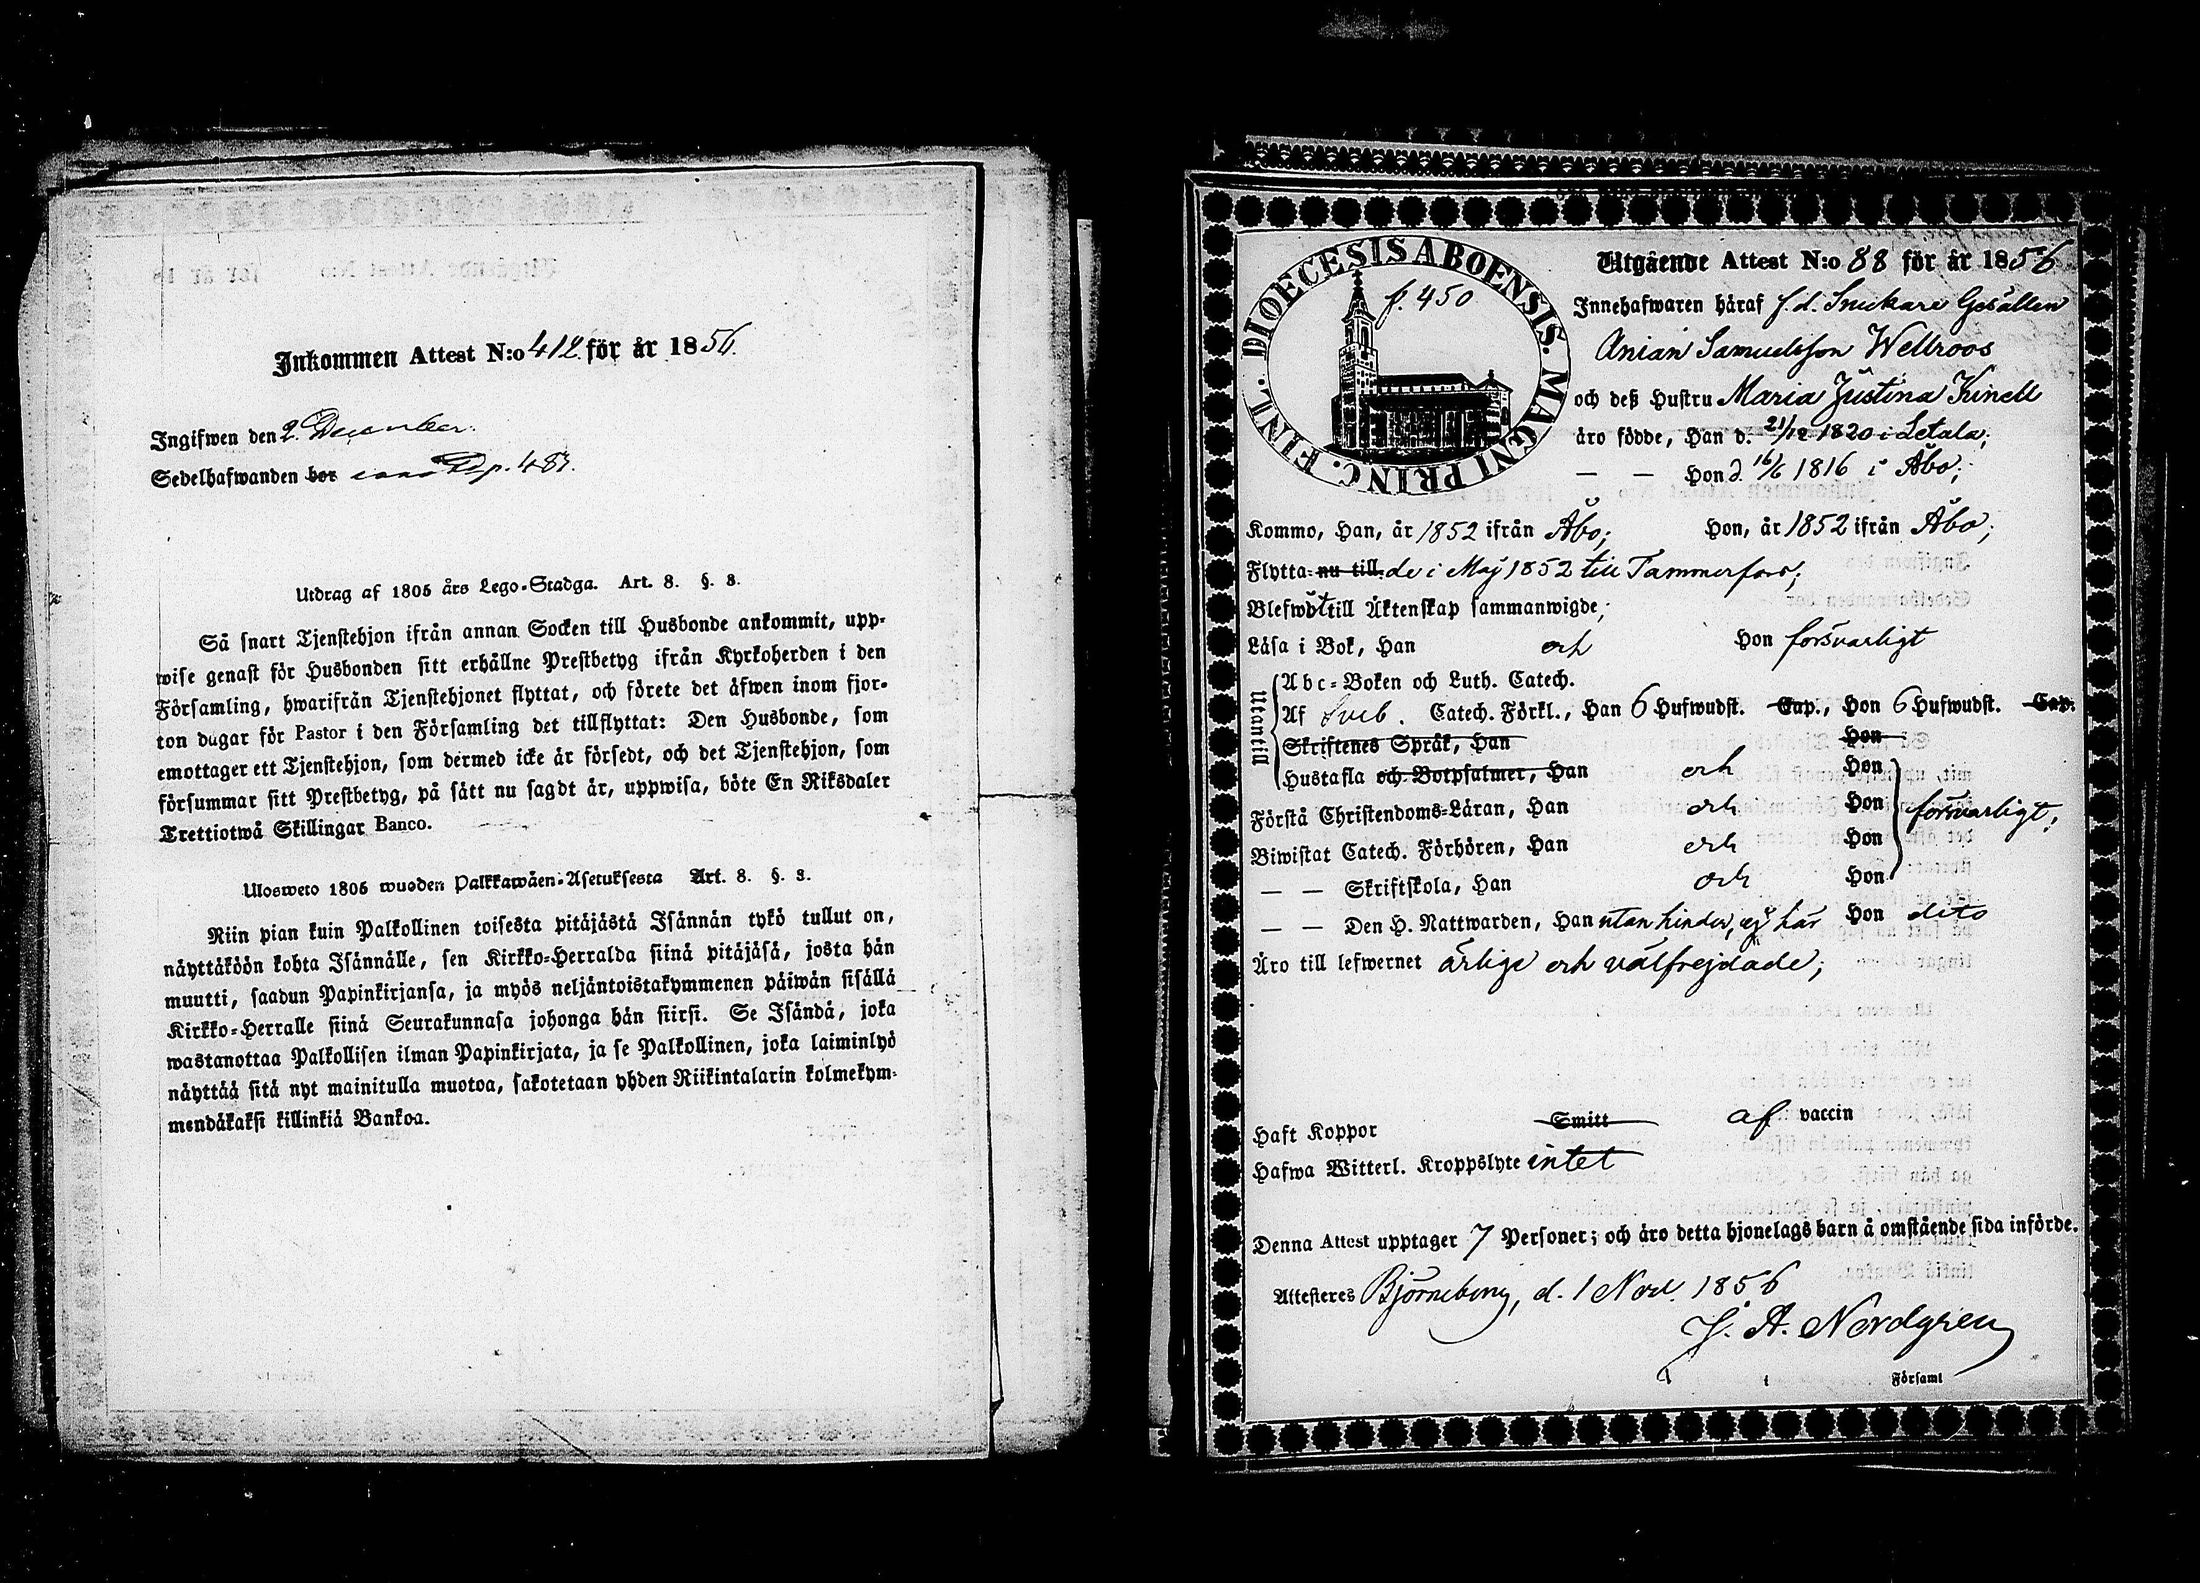 Inkommen Attest N:o 412 för år 1856.
Ingifwen den 2. December.
Sedelhafwanden bor p. 483.
Utdrag af 1805 års Lego-Stadga. Art. 8. §. 3.
Så snart Tjenstehjon ifrån annan Socken till Husbonde ankommit, upp-
wise genast för Husbonden sitt erhållne Prestbetyg ifrån Kyrkoherden i den
Församling, hwarifrån Tjenstehjonet flyttat, och förete det äfwen inom fjor-
ton dagar för Pastor i den Församling det tillflyttat: Den Husbonde, som
emottager ett Tjenstehjon, som dermed icke är försedt, och det Tjenstehjon, som
försummar sitt Prestbetyg, på sätt nu sagdt är, uppwisa, böte En Riksdaler
Trettiotwå Skillingar Banco.
Ulosweto 1805 wuoden Palkkawäen-Asetuksesta Art. 8. §. 3.
Niin pian kuin Palkollinen toisesta pitäjästä Isännän tykö tullut on,
näyttäköön kohta Isännälle, sen Kirkko-Herralda siinä pitäjäsä, josta hän
muutti, saadun Papinkirjansa, ja myös neljäntoistakymmenen päiwän sisällä
Kirkko-Herralle siinä Seurakunnasa johonga hän siirsi. Se Isändä, joka
wastanottaa Palkollisen ilman Papinkirjata, ja se Palkollinen, joka laiminlyö
näyttää sitä nyt mainitulla muotoa, sakotetaan yhden Riikintalarin kolmekym-
mendäkaksi killinkiä Bankoa.
DIOECESIS ABOENSIS. MAGNI PRINC. FINL.
f. 450
Utgående Attest N:o 88 för år 1856
Innehafwaren häraf f.d. Snickare Gesällen
Anian Samuelsson Wellroos
och deß Hustru Maria Justina Kinell
äro födde, Han d. 21/12 1820 i Letala;
— — Hon d. 16/6 1816 i Åbo;
Kommo, Han, år 1852 ifrån Åbo; Hon, år 1852 ifrån Åbo;
Flytta nu till de i Maj 1852 till Tammerfors;
Blefwo till Äktenskap sammanwigde;
Läsa i Bok, Han och Hon försvarligt
Utantill
Abc-Boken och Luth. Catech.
Af Sveb. Catech. Förkl., Han 6 Hufwudst. Cap., Hon 6 Hufwudst. Cap.
Skriftenes Språk, Han Hon
Hustafla och Botpsalmer, Han och Hon
Förstå Christendoms-Läran, Han och Hon försvarligt;
Biwistat Catech. Förhören, Han och Hon
— — Skriftskola, Han och Hon
— — Den H. Nattwarden, Han utan hinder, ej här Hon dito
Äro till lefwernet ärlige och välfrejdade;
Haft Koppor Smitt af vaccin
Hafwa Witterl. Kroppslyte intet
Denna Attest upptager 7 Personer; och äro detta hjonelags barn å omstående sida införde.
Attesteres Björneborg, d. 1 Nov. 1856
J. A. Nordgren
i Församl